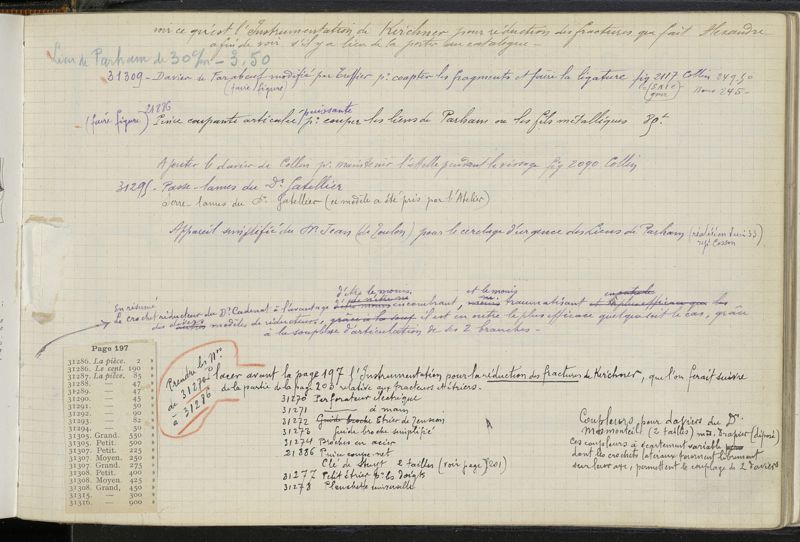 voir ce qu'est l'Instrumentation de Kirchner pour réduction des fractures que fait Alexandre
afin de voir s'il y a lieu de la porter au catalogue -
Lien de Parham de 30 c/m - 3,50
31309 - Davier de Farabeuf modifié par Truffier pr coapter les fragments et faire la ligature fig 2117 Collin 249.50
(faire figure) nous 245 -
21286 puissante
(faire figure) Pince coupante articulée pr couper les liens de Parham ou les fils métalliques
Ajouter le davier de Collin pr maintenir l'attelle pendant le vissage fig 2090 Collin
31295 - Passe-lames du Dr Gatellier
Serre-lames du Dr Gatellier (ce modèle a été pris par l'Atelier)
Appareil simplifié du Mr Jean (de Toulon) pour le cerclage d'urgence des liens de Parham
d'être le moins et le moins
En résumé
le crochet réducteur du Dr Cadenat à l'avantage encombrant, traumatisant
des modèles de réducteurs, il est en outre le plus efficace quelque soit le cas, grâce
à la souplesse d'articulation de ses 2 branches -
Prendre les Nos
de 31270
à 31286
Placer avant la page 197 l'Instrumentation pour la réduction des fractures de Kirschner, que l'on ferait suivre
de la partie de la page 203 relative aux fracteurs Métriers.
31270 Perforateur électrique
31271 — à main
31272 Guide broche Etrier de Tension
31273 Guide broche simplifié
31274 Broches en acier
21386 Pince coupe-net
Clé de 2 tailles (voir page 201)
31277 Petit étrier pr les doigts
31278 Planchette universelle
Coupleurs pour daviers du Dr
(2 tailles) Drapier (déposé)
Ces coupleurs à écartement variable
dont les crochets latéraux tournent librement
sur leur axe, permettent le couplage de 2 daviers
Page 197
31286. La pièce. 2 »
31286. Le cent. 190 »
31287. La pièce. 85 »
31288. — 47 »
31289. — 47 »
31290. — 45 »
31291. — 50 »
31292. — 90 »
31293. — 82 »
31294. —
31305. Grand. 550 »
31305. Petit. 500 »
31307. Petit. 225 »
31307. Moyen. 250 »
31307. Grand. 275 »
31308. Petit. 400 »
31308. Moyen. 425 »
31308. Grand. 450 »
31315. — 300 »
31316. — 900 »